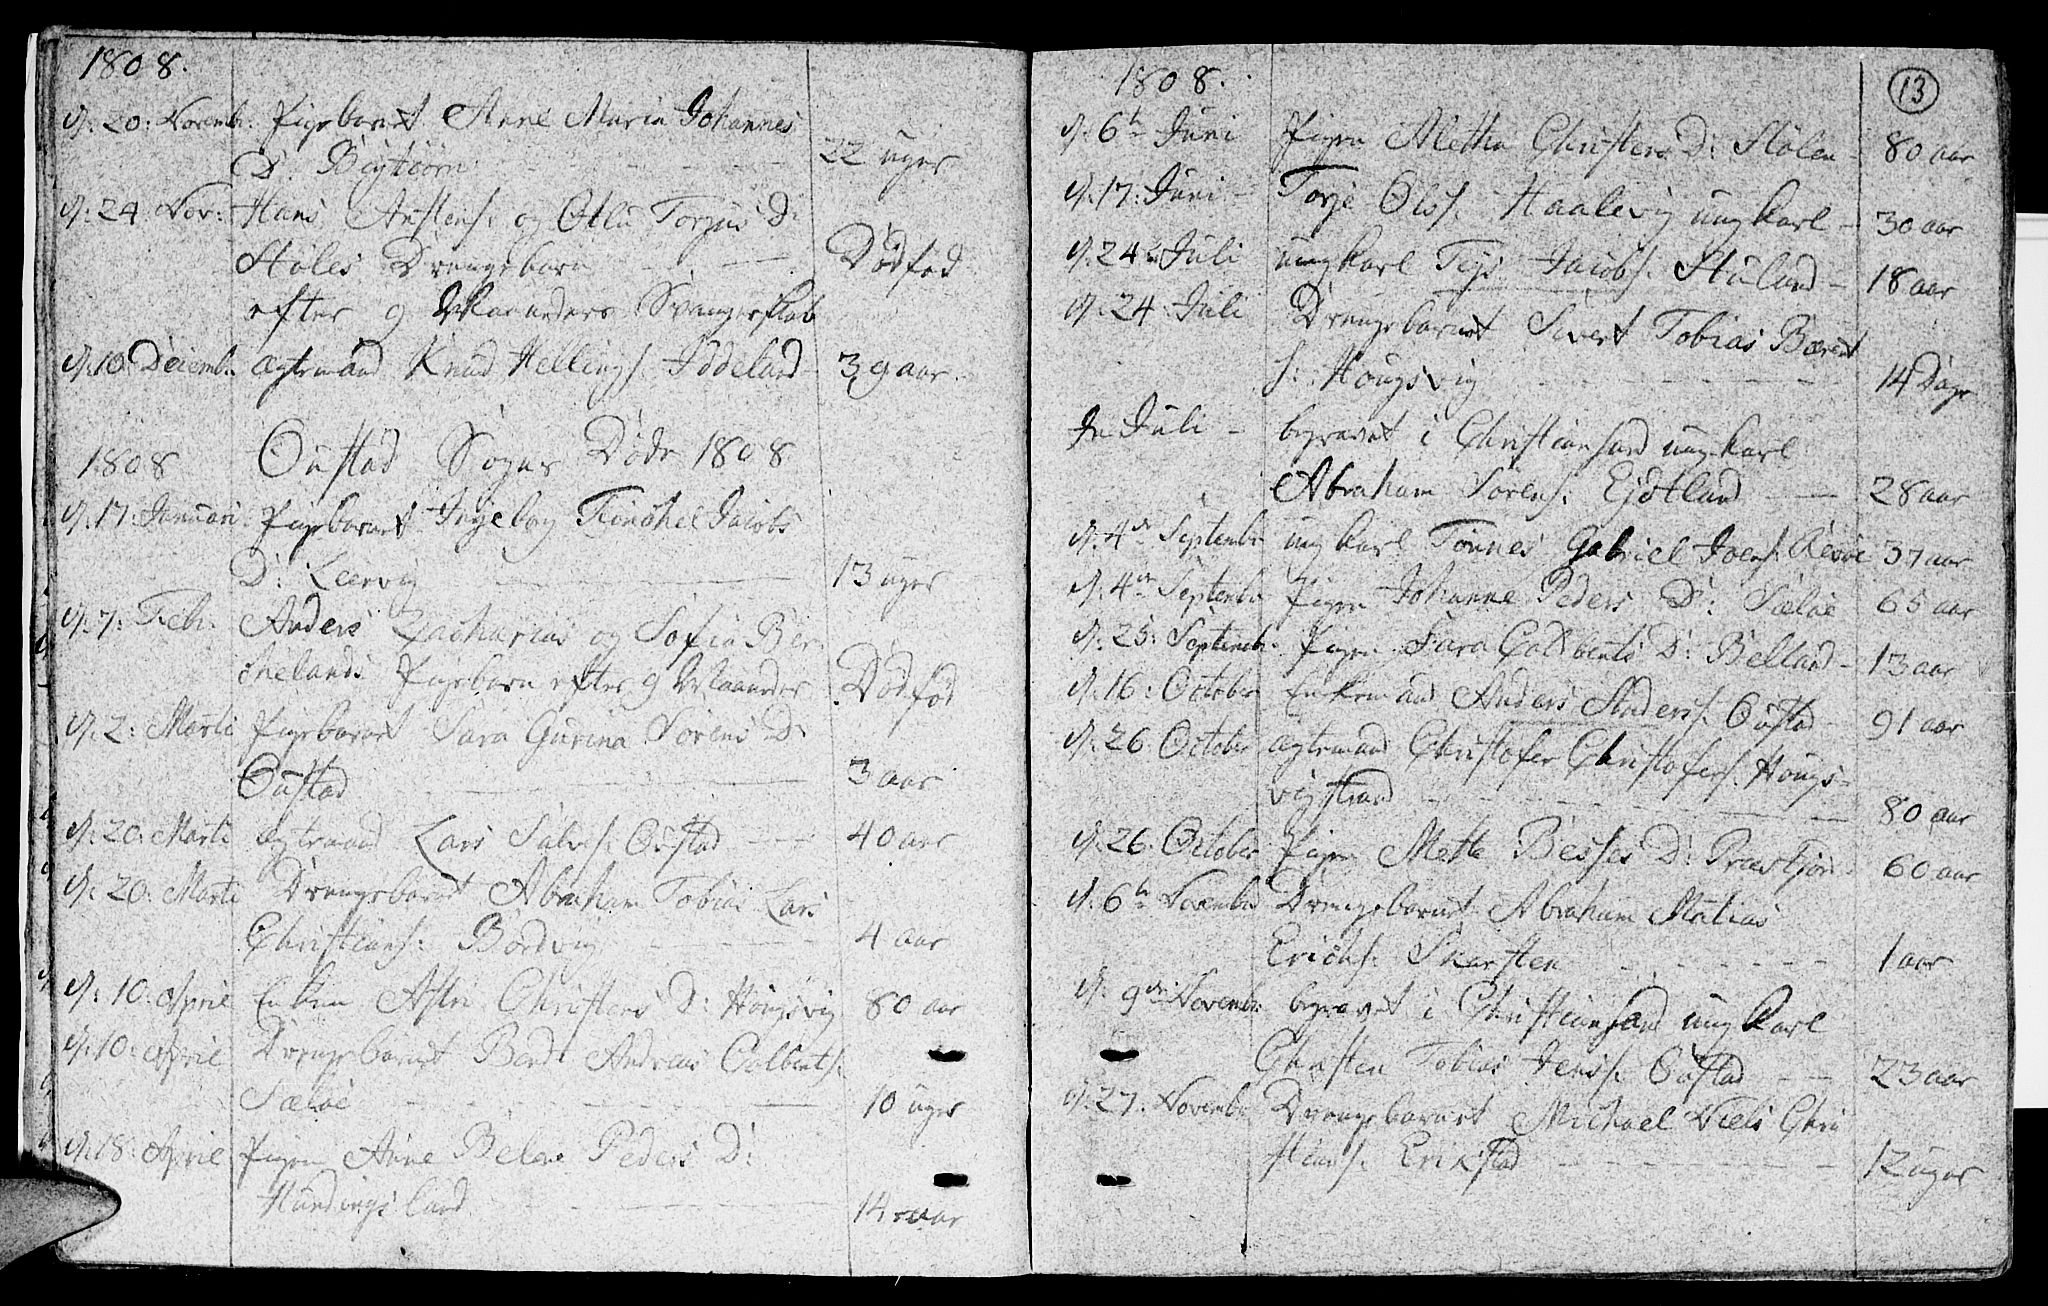 1808.
d. 20. Novemb: Pigebarnet Anne Maria Johannes
D:
22 uger
d. 24 Nov: Hans Anstens: og Torjus D:
Støles Drengebarn
Dødfød
efter 9 Maaneders Svangerskab
d. 10 Decemb: ægtemand Knud Hellings: Iddeland
39 aar.
1808 Oustad Sogns Døde 1808
d. 17: Januari Pigebarnet Ingeborg Jacobs
D: Leervig
13 uger
d. 7: Feb: Anders Zacharias og Sofia Ber
chelands Pigebarn efter 9 Maaneder
Dødfød
d. 2: Marti Pigebarnet Sara Gurina Sørens D:
Oustad
3 aar
d. 20: Marti ægtemand Lars Salves: Oustad 40 aar
d. 20: Marti Drengebarnet Abraham Tobias Lars
Christians: Bordvig 4 aar
d. 10: April Enken Astri Christens D: Hougsvig 80 aar
d. 10: April Drengebarnet Berdt Andreas Colbents:
Seløe
10 uger
d. 18: April Pigen Anne Belene Peders D:
Hundingsland
14 aar
1808.
13
d. 6te Juni Pigen Aletha Christens D: Stølen 80 aar
d. 17: Juni Torje Ols: Haalevig ungkarl 30 aar
d. 24de Juli ungkarl Teys Jacobs: Stuland 18 aar
d. 24 Juli Drengebarnet Sivert Tobias Bærent
s: Hougsvig
14 Dage
In Juli begravet i Christiansand ungkarl
Abraham Sorens: Ejdtland 28 aar
d. 4de Septemb ungkarl Tønnes Gabriel Joens: 37 aar
d. 4de Septemb Pigen Johanne Peders D: Seløe 65 aar
d. 25: Septemb: Pigen Sara Colbents D: Belland 13 aar
d. 16: October Enkemand Anders Anders: Oustad 91 aar
d. 26. October ægtemand Christofer Christofers: Hougs-
vigstrand
80 aar
d. 26. October Pigen Mette Besses D: 60 aar
d. 6te Novemb Drengebarnet Abraham Matias
Erichs: Skarsten 1 aar
d. 9de Novemb: begravet i Christiansand ungkarl
Christen Tobias Jens: Oustad 23 aar
d. 27. Novemb Drengebarnet Michael Niels Chri
stians: Erikstad 12 uger